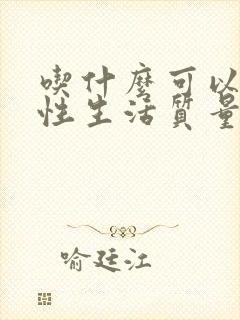 喫什麼可以
性生活質量
喻廷江